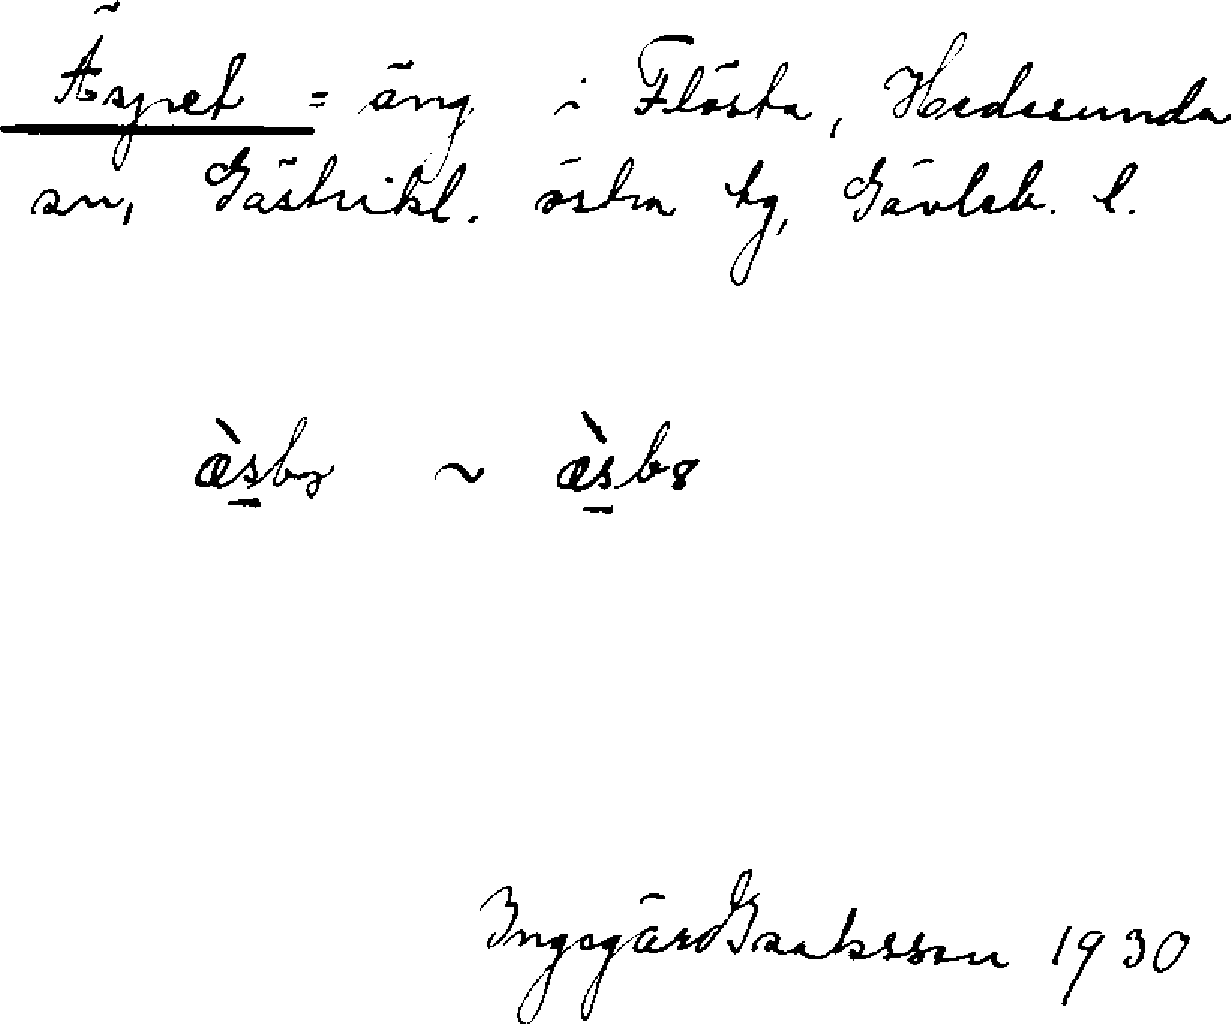 Äspet = äng i Flösta, Hedesunda
sn, Gästrikl. östra tg, Gävleb. l.
~
Ingegärd Isaksson 1930